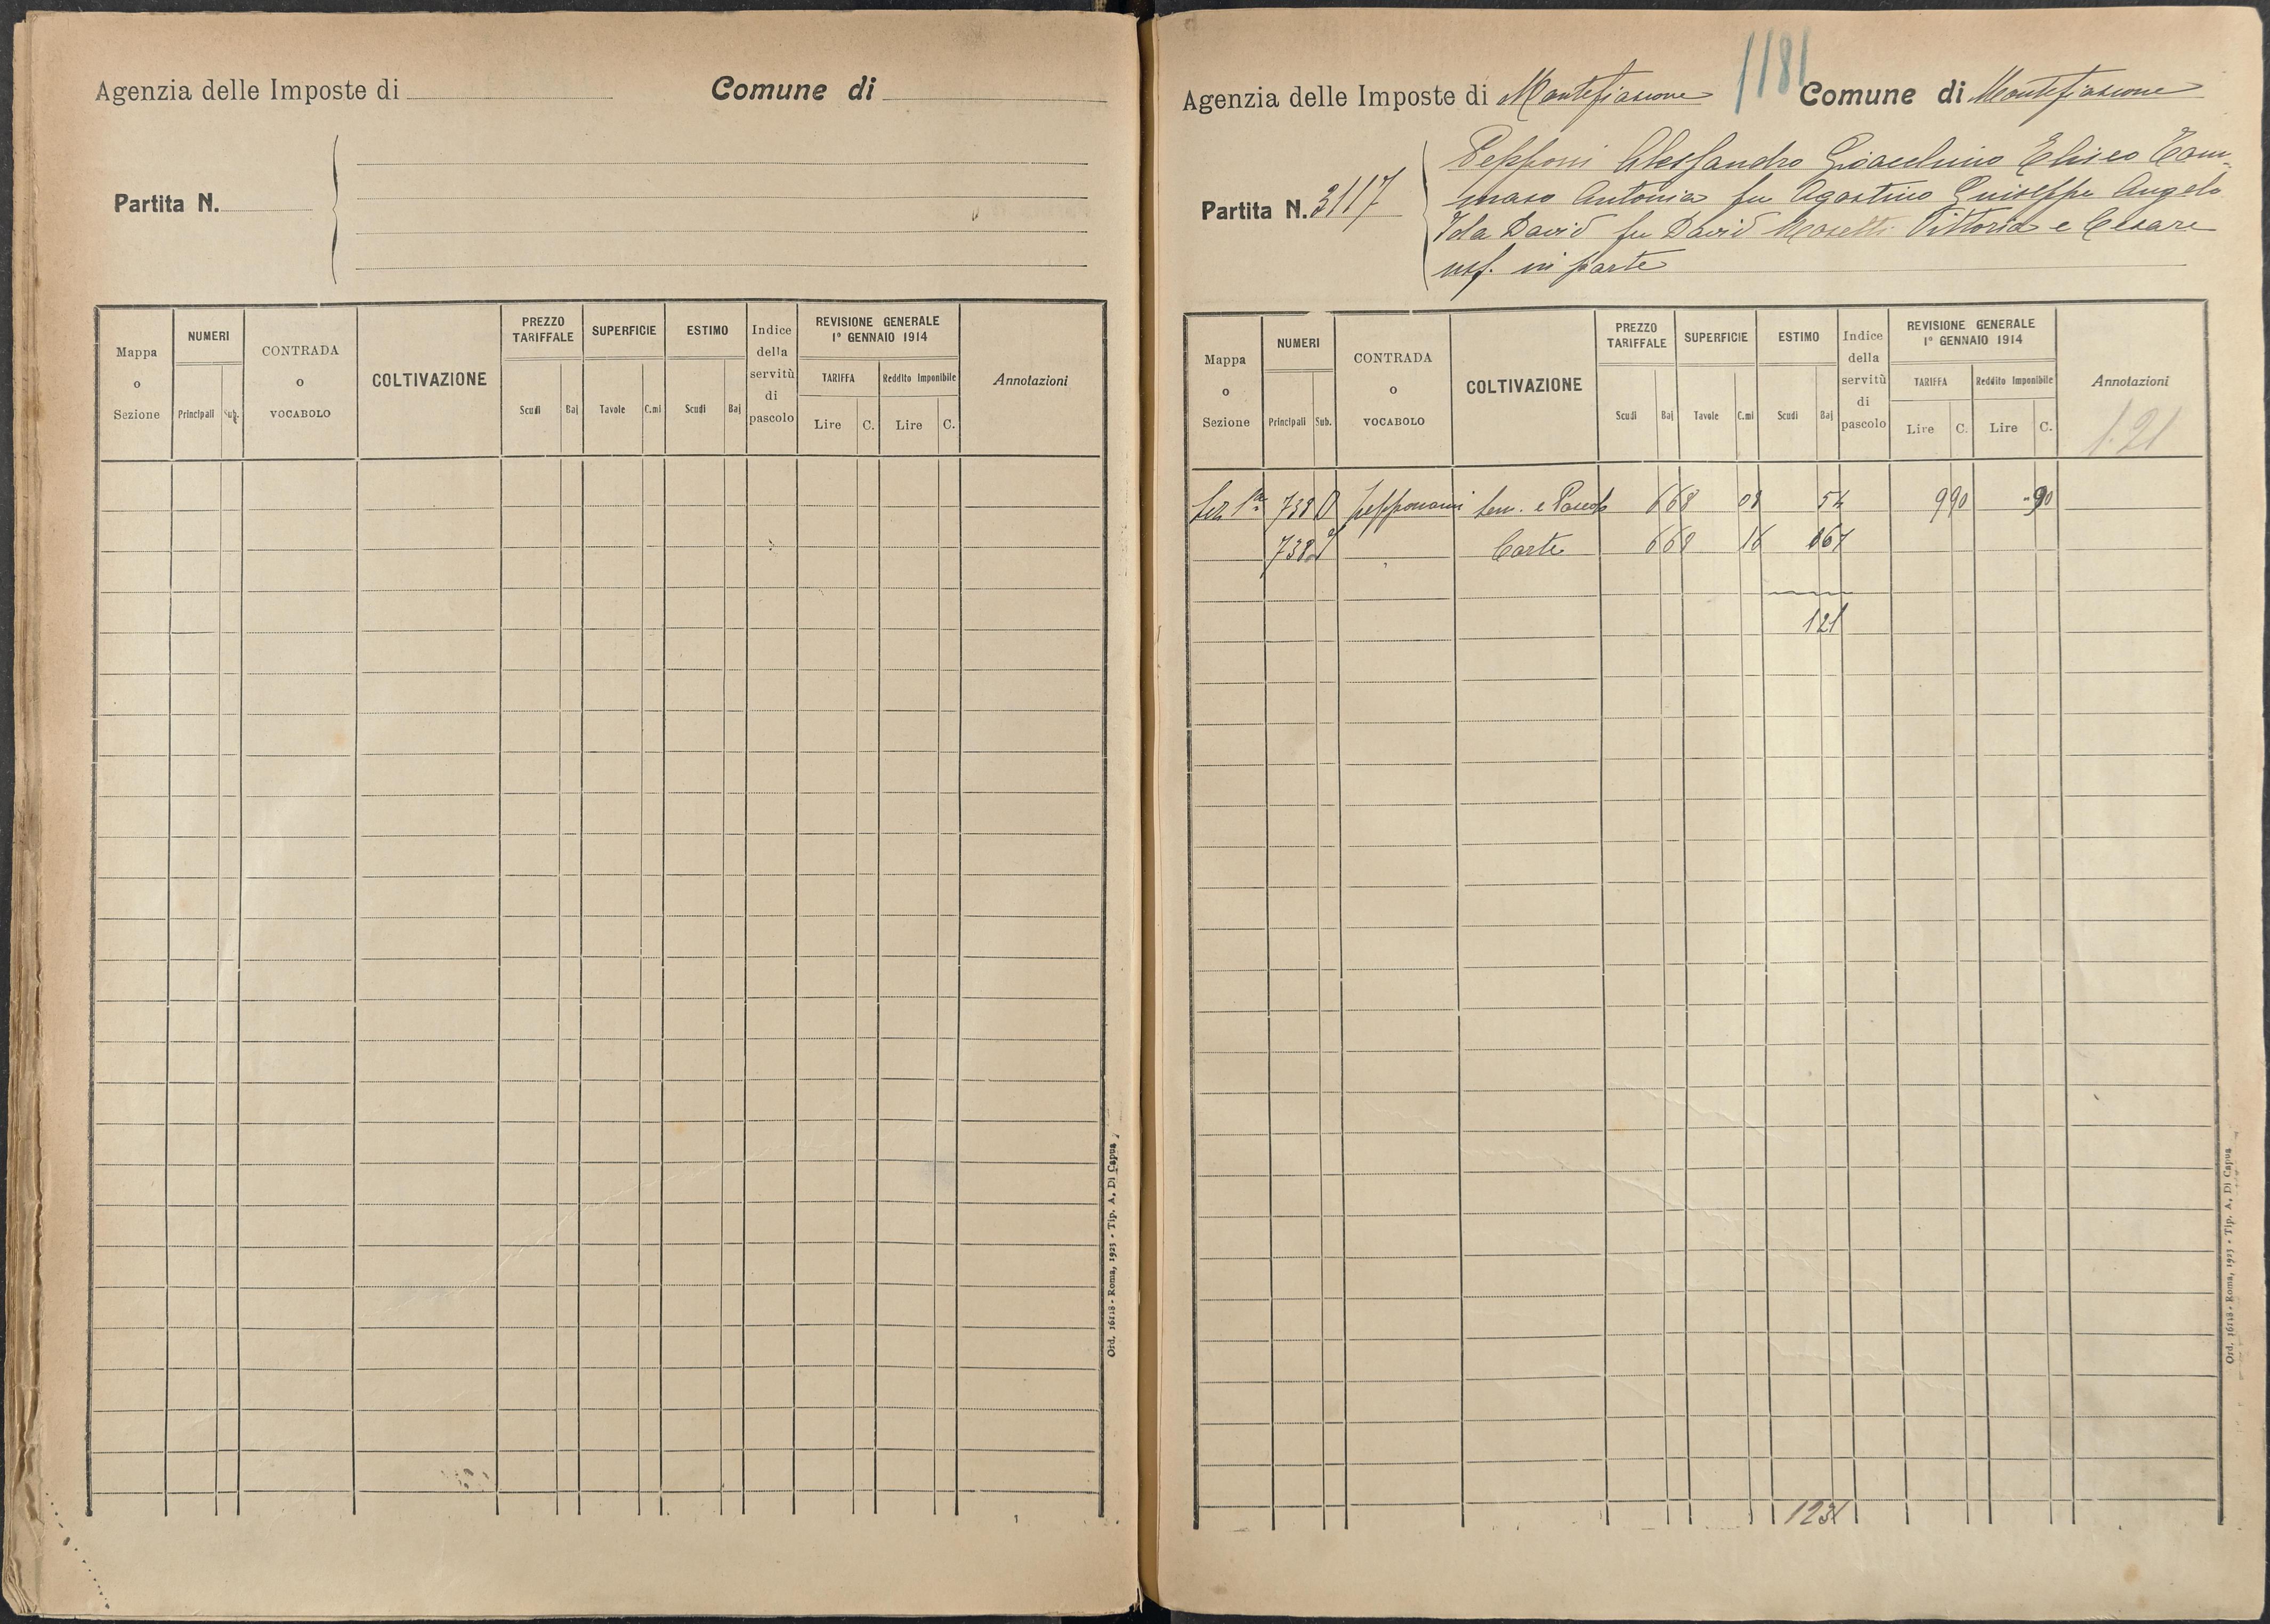 Agenzia delle Imposte di
Comune di
Partita N.
Mappa o Sezione
NUMERI
Principali
Sub.
CONTRADA o VOCABOLO
COLTIVAZIONE
PREZZO TARIFFALE
Scudi
Baj
SUPERFICIE
Tavole
C.mi
ESTIMO
Scudi
Baj
Indice della servitù di pascolo
REVISIONE GENERALE 1° GENNAIO 1914
TARIFFA
Lire
C.
Reddito Imponibile
Lire
C.
Annotazioni
Ord. 16118 - Roma, 1923 - Tip. A. Di Capua
1181
Agenzia delle Imposte di Montefiascone
Comune di Montefiascone
Partita N. 3117
Pepponi Alessandro Gioacchino Eliseo Tom-
maso Antonia fu Agostino Giuseppe Angelo
Ida David fu David Mosetti Vittoria e Cesare
usf. in parte
Mappa o Sezione
NUMERI
Principali
Sub.
CONTRADA o VOCABOLO
COLTIVAZIONE
PREZZO TARIFFALE
Scudi
Baj
SUPERFICIE
Tavole
C.mi
ESTIMO
Scudi
Baj
Indice della servitù di pascolo
REVISIONE GENERALE 1° GENNAIO 1914
TARIFFA
Lire
C.
Reddito Imponibile
Lire
C.
Annotazioni
1.21
Sez. 1ª 738 Sem. e Pascolo 668 08 54 990 90
738 668 16 67
121
123
Ord. 16118 - Roma, 1923 - Tip. A. Di Capua